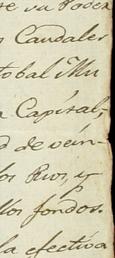 te su Poder
s Caudales
tobal Mu
a Capital,
d de vein-
los Rios, y
llos fondos.
la efectiva